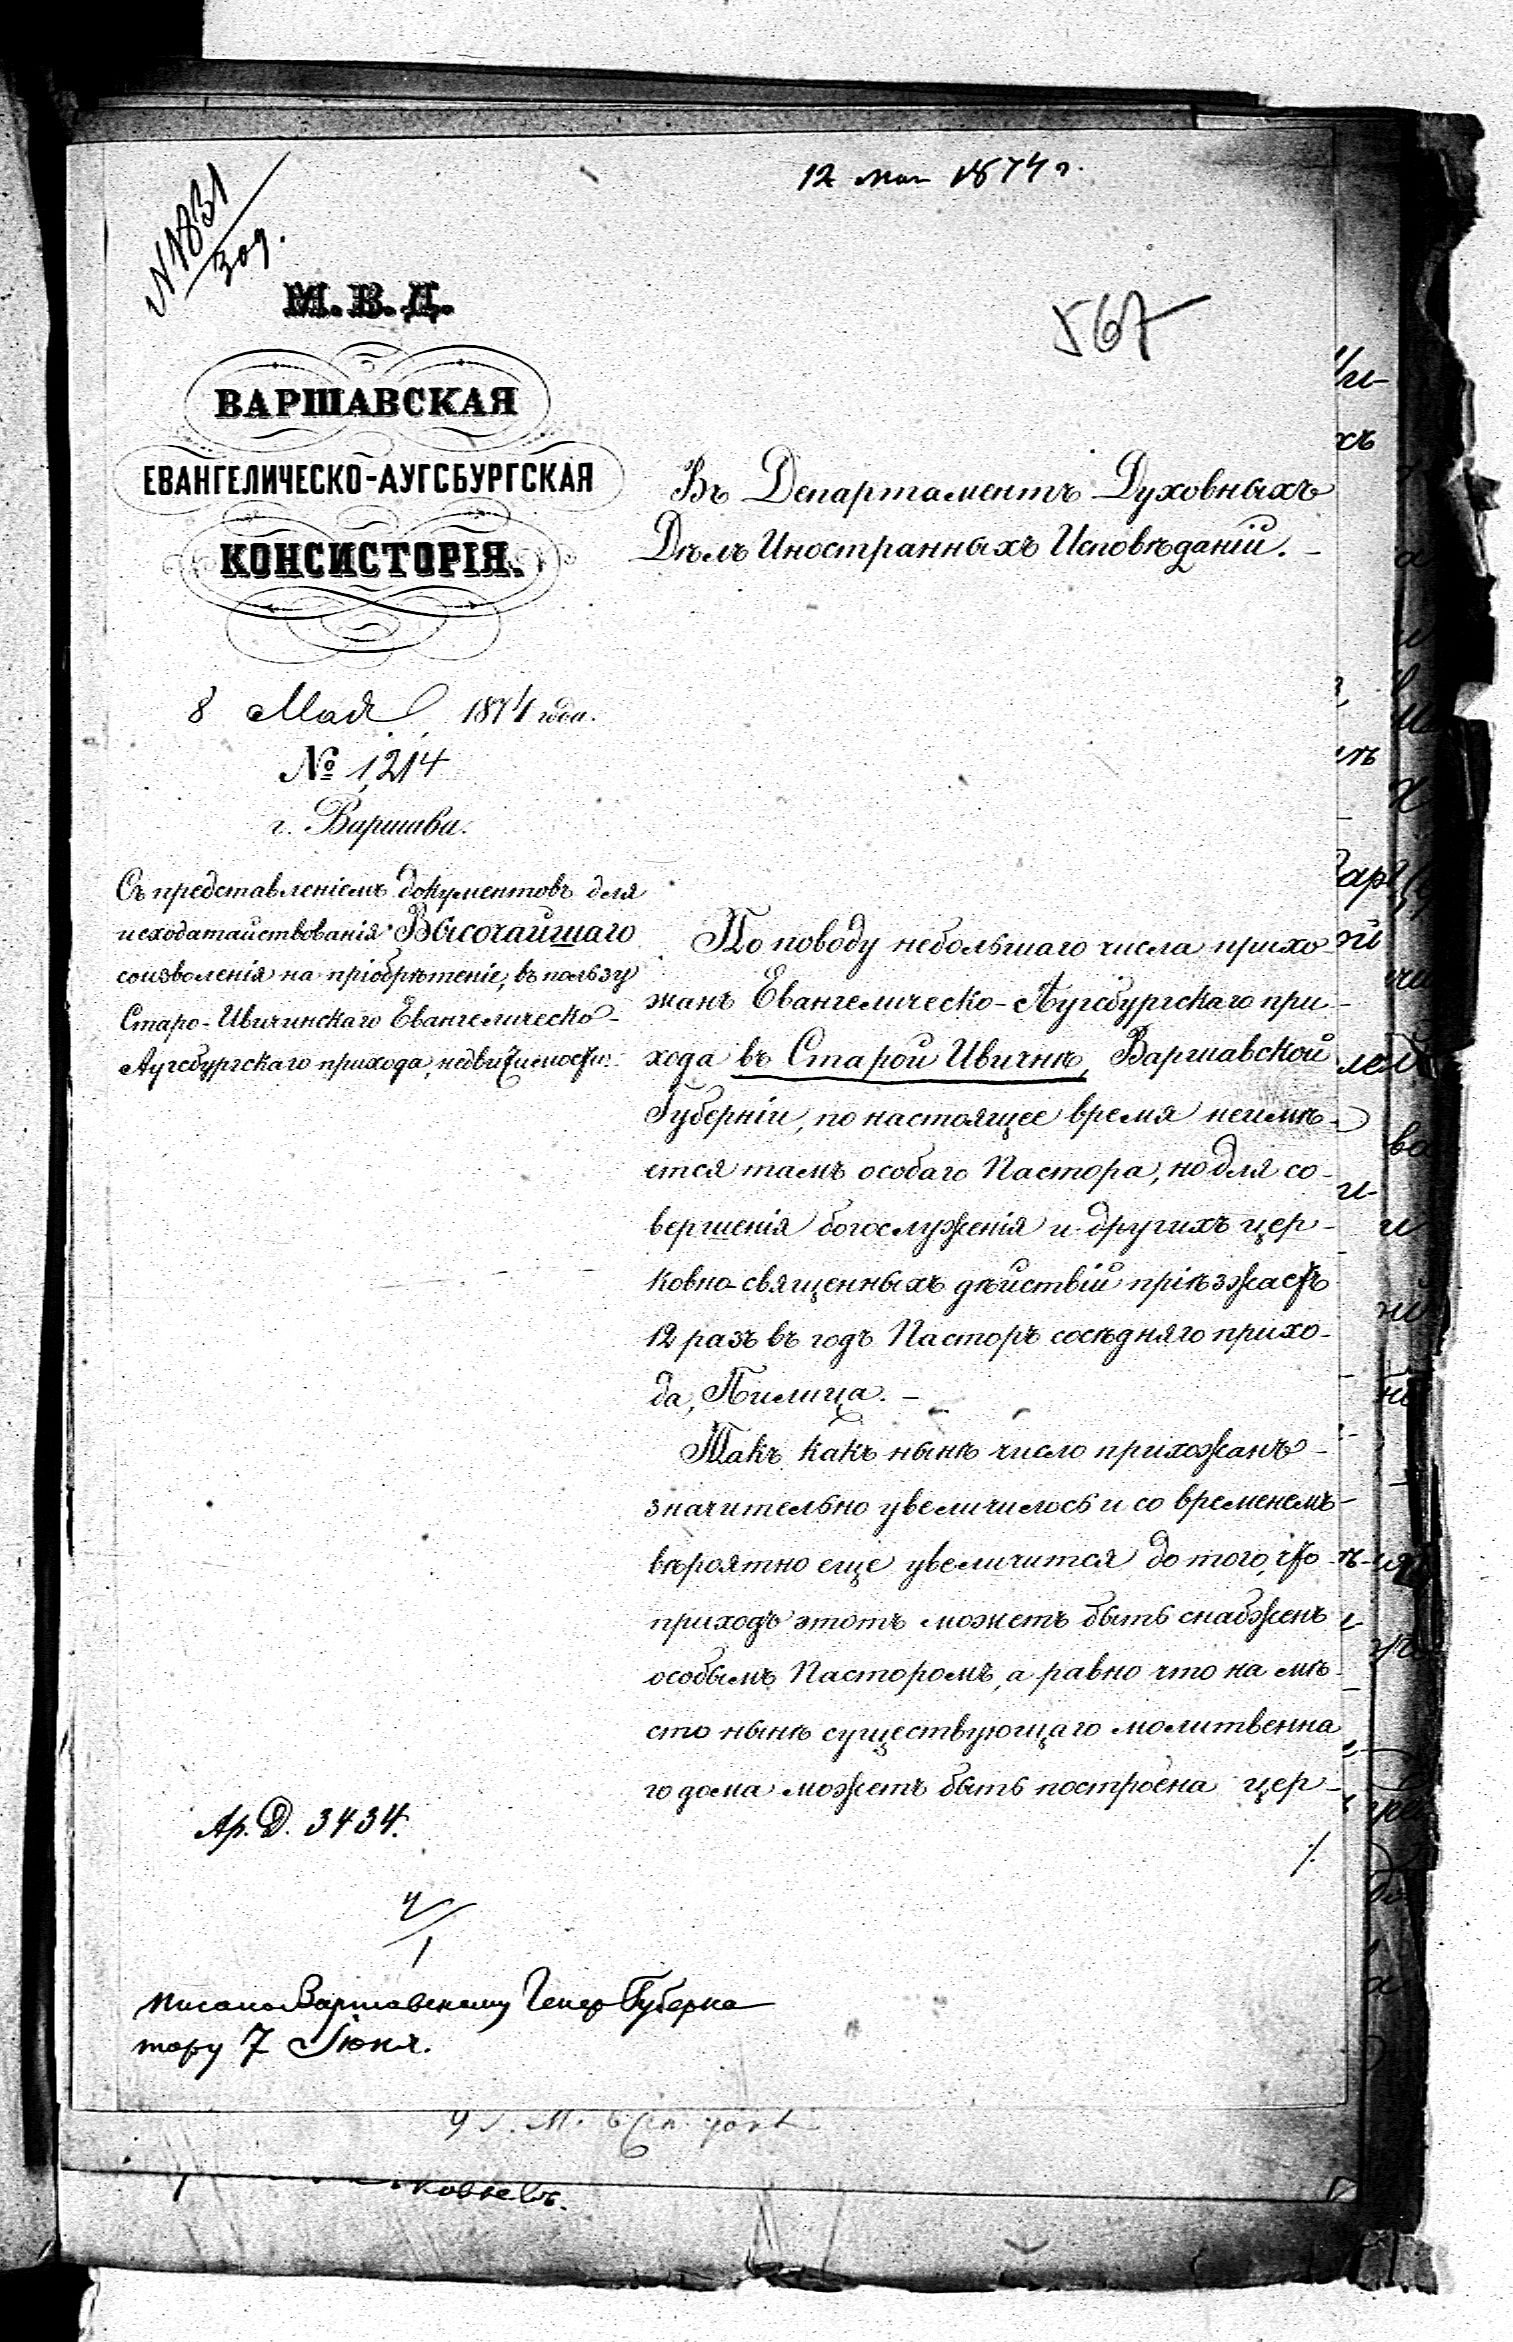 12 мая 1874 г.
№ 1831
567
М. В. Д.
ВАРШАВСКАЯ
ЕВАНГЕЛИЧЕСКО-АУГСБУРГСКАЯ
КОНСИСТОРІЯ.
8 Мая 1874 года.
№ 1214
г. Варшава.
Съ представленіемъ документовъ для
исходатайствованія Высочайшаго
соизволенія на пріобрѣтеніе, въ пользу
Старо-Ивичинскаго Евангелическо-
Аугсбургскаго прихода, недвижимости.
Въ Департаментъ Духовныхъ
Дѣлъ Иностранныхъ Исповѣданій. –
По поводу небольшаго числа прихо-
жанъ Евангелическо-Аугсбургскаго при-
хода въ Старой Ивичнѣ, Варшавской
Губерніи, по настоящее время неимѣ-
ется тамъ особаго Пастора, но для со-
вершенія богослуженія и другихъ цер-
ковно-священныхъ дѣйствій пріѣзжаетъ
12 разъ въ годъ Пасторъ сосѣдняго прихо-
да, Пилица. –
Такъ какъ нынѣ число прихожанъ
значительно увеличилось и со временемъ
вѣроятно еще увеличится до того, что
приходъ этотъ можетъ быть снабженъ
особымъ Пасторомъ, а равно что на мѣ-
сто нынѣ существующаго молитвенна
го дома можетъ быть построена цер-
./.
Ар. Д. 3434.
писано Варшавскому Генер Губерна
тору 7 Іюня.